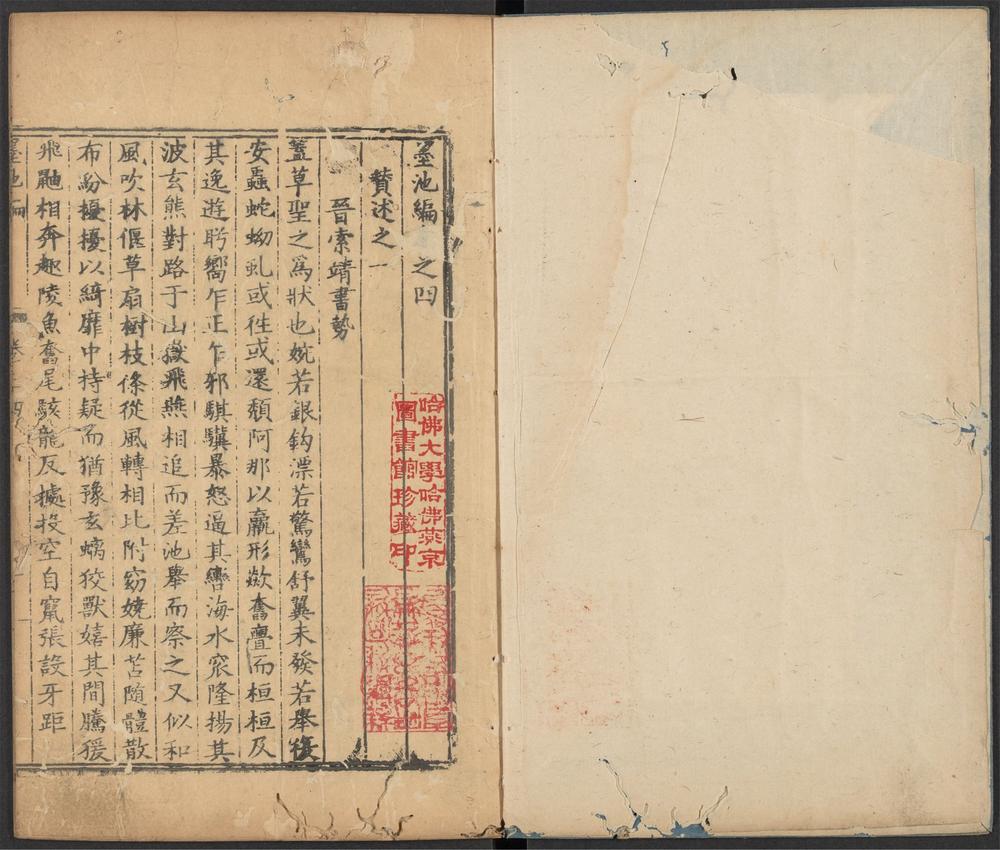 墨池編 之四
賛述之一
晉索靖書勢
蓋草聖之爲狀也婉若銀鈎漂若驚鸞舒翼未發若舉復
安蟲蛇蚴虬或徃或還頽阿那以羸形歘奮亹而桓桓及
其逸遊肹嚮乍正乍邪騏驥暴怒逼其轡海水窊隆揚其
波玄熊對路于山嶽飛燕相追而差池舉而察之又似和
風吹林偃草扇樹枝條從風轉相比附窈嬈廉苫隨體散
布紛擾擾以綺靡中持疑而猶豫玄螭狡獸嬉其間騰猨
飛鼬相奔趣陵魚奮尾駭龍反據投空自竄張設牙距
墨池編
哈佛大學哈佛燕京
圖書館珍藏印